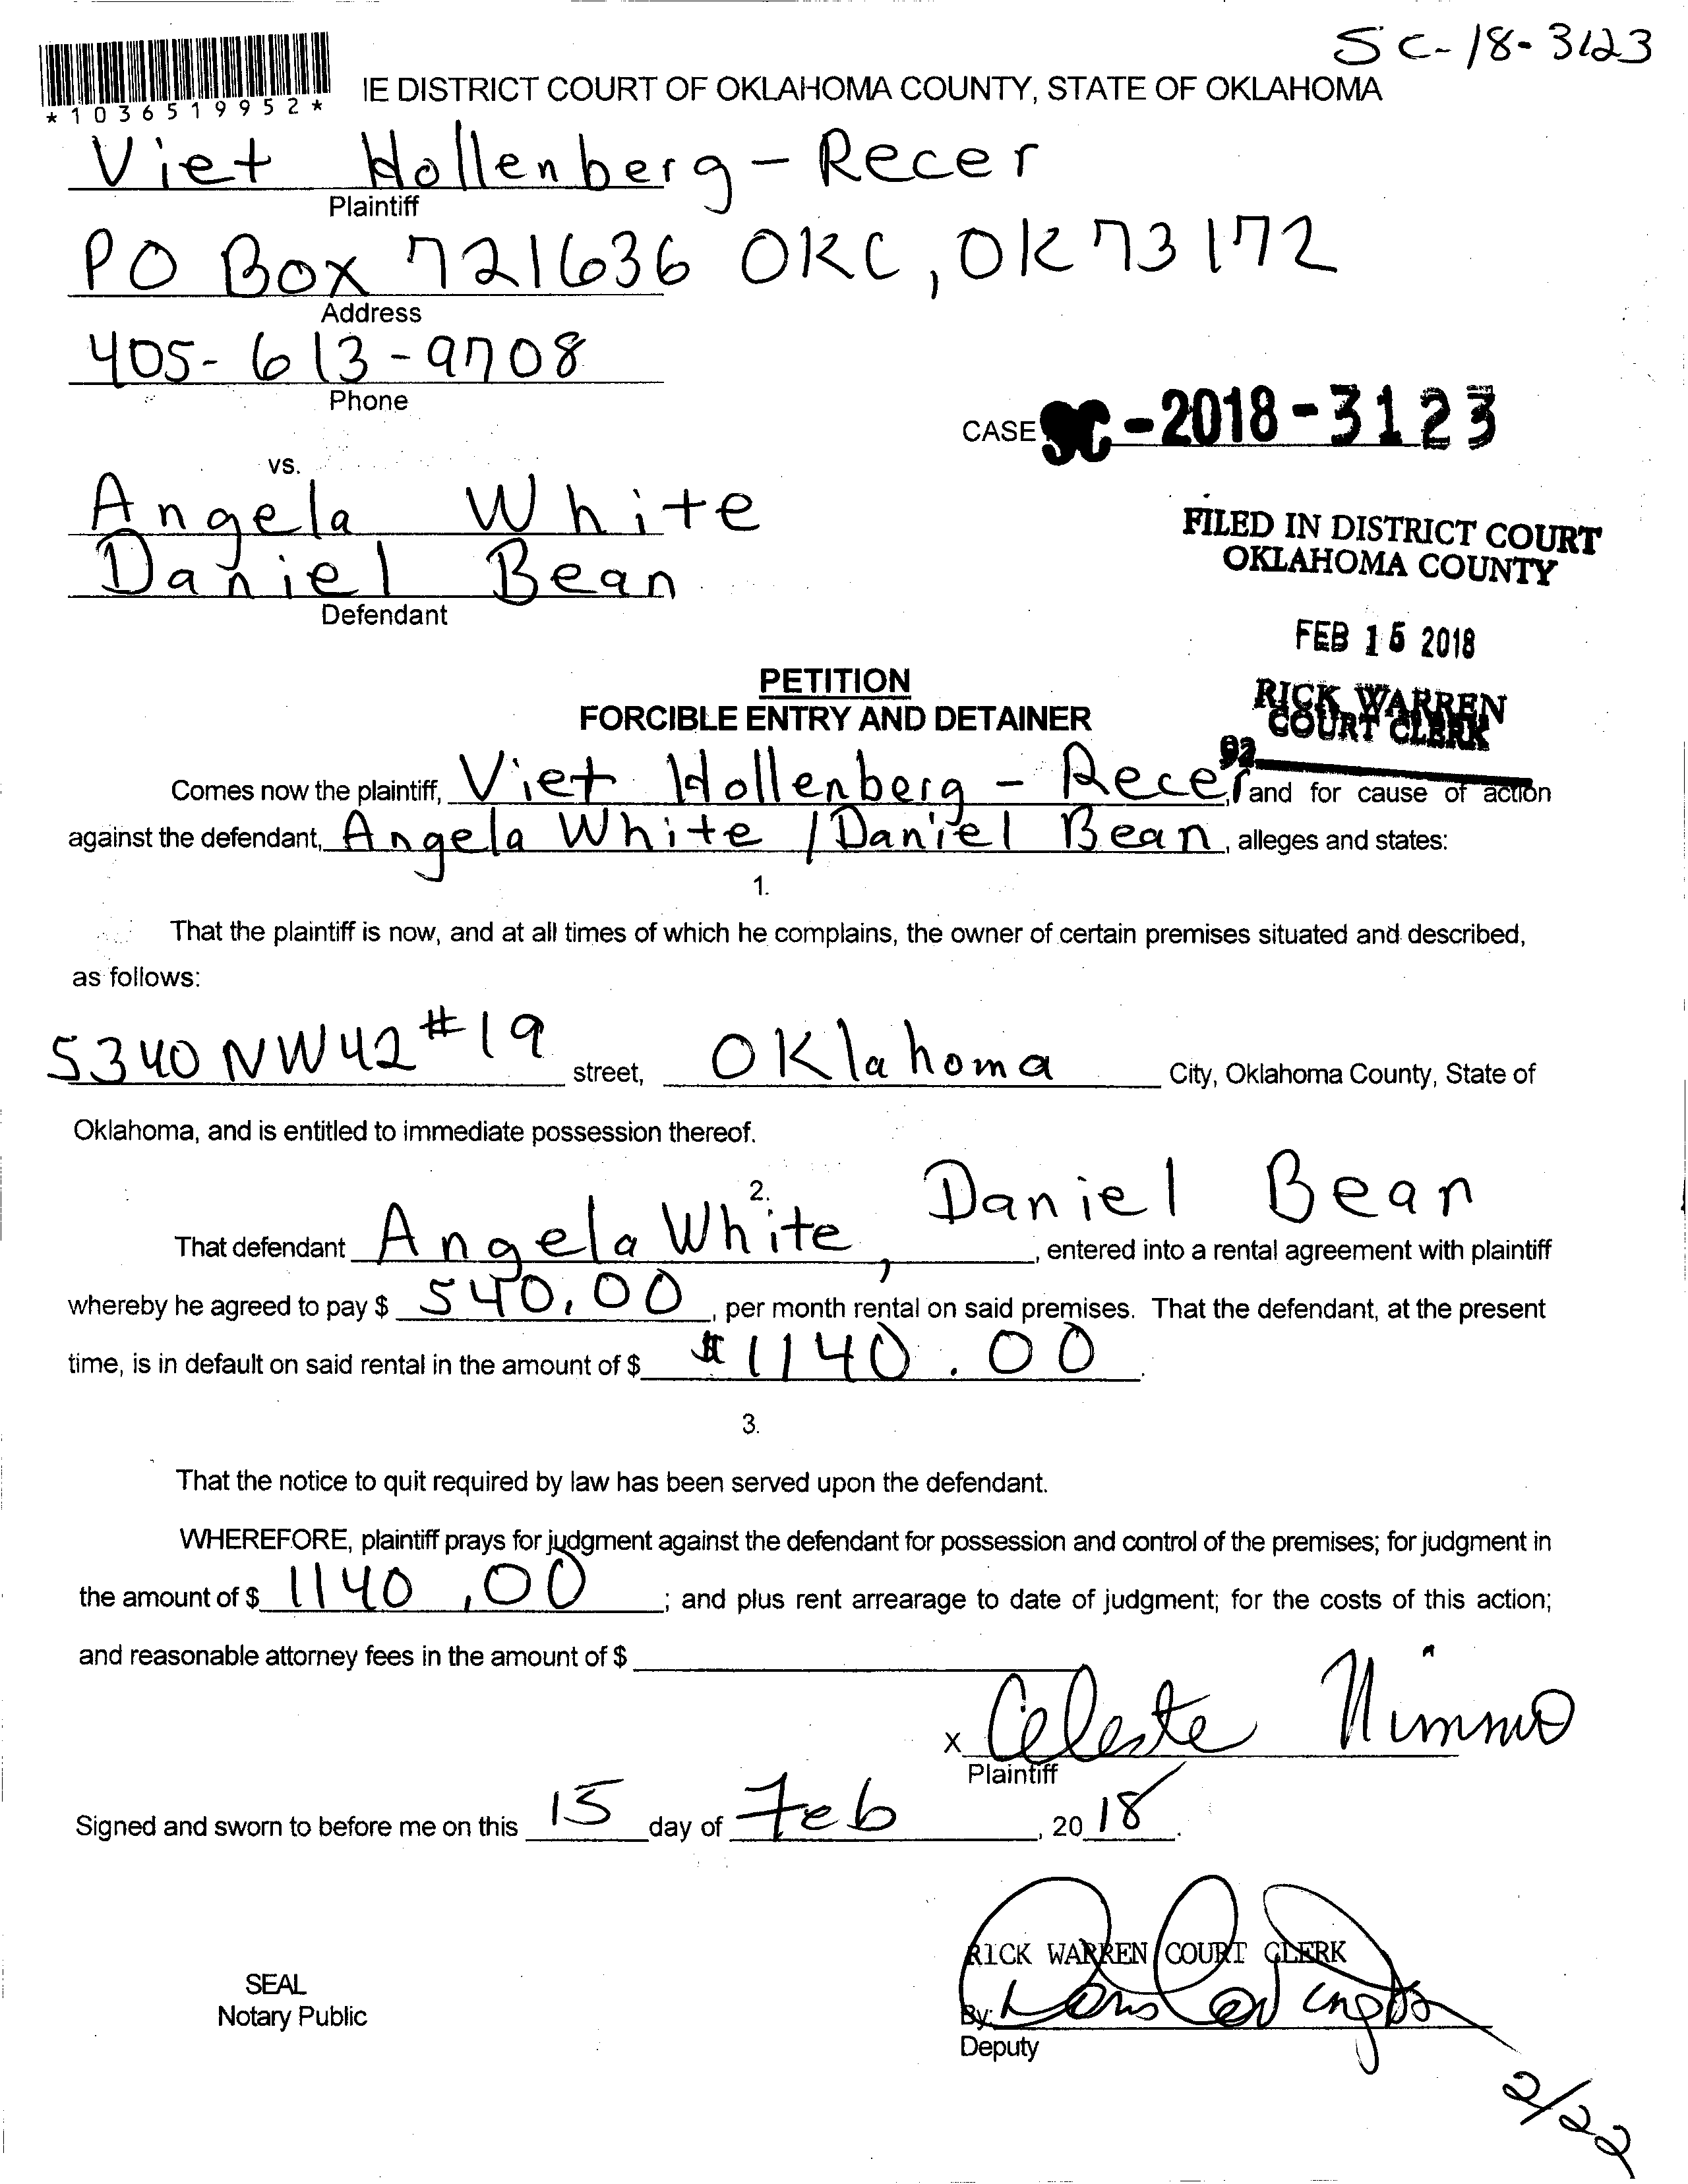 SC-18-3123
*1036519952*
IE DISTRICT COURT OF OKLAHOMA COUNTY, STATE OF OKLAHOMA
Viet Hollenberg-Recer
Plaintiff
PO Box 721636 OKC, OK 73172
Address
405-613-9708
Phone
CASE SC-2018-3123
vs.
Angela White
Daniel Bean
Defendant
FILED IN DISTRICT COURT
OKLAHOMA COUNTY
FEB 15 2018
RICK WARREN
COURT CLERK
92
PETITION
FORCIBLE ENTRY AND DETAINER
Comes now the plaintiff, Viet Hollenberg - Recer, and for cause of action
against the defendant, Angela White / Daniel Bean, alleges and states:
1.
That the plaintiff is now, and at all times of which he complains, the owner of certain premises situated and described,
as follows:
5340 NW 42 #19 street, Oklahoma City, Oklahoma County, State of
Oklahoma, and is entitled to immediate possession thereof.
2.
That defendant Angela White, Daniel Bean, entered into a rental agreement with plaintiff
whereby he agreed to pay $ 540.00, per month rental on said premises. That the defendant, at the present
time, is in default on said rental in the amount of $ $1140.00.
3.
That the notice to quit required by law has been served upon the defendant.
WHEREFORE, plaintiff prays for judgment against the defendant for possession and control of the premises; for judgment in
the amount of $ 1140.00; and plus rent arrearage to date of judgment; for the costs of this action;
and reasonable attorney fees in the amount of $
x Celeste Nimmo
Plaintiff
Signed and sworn to before me on this 15 day of Feb, 2018.
RICK WARREN COURT CLERK
SEAL
Notary Public
By:
Deputy
2/22